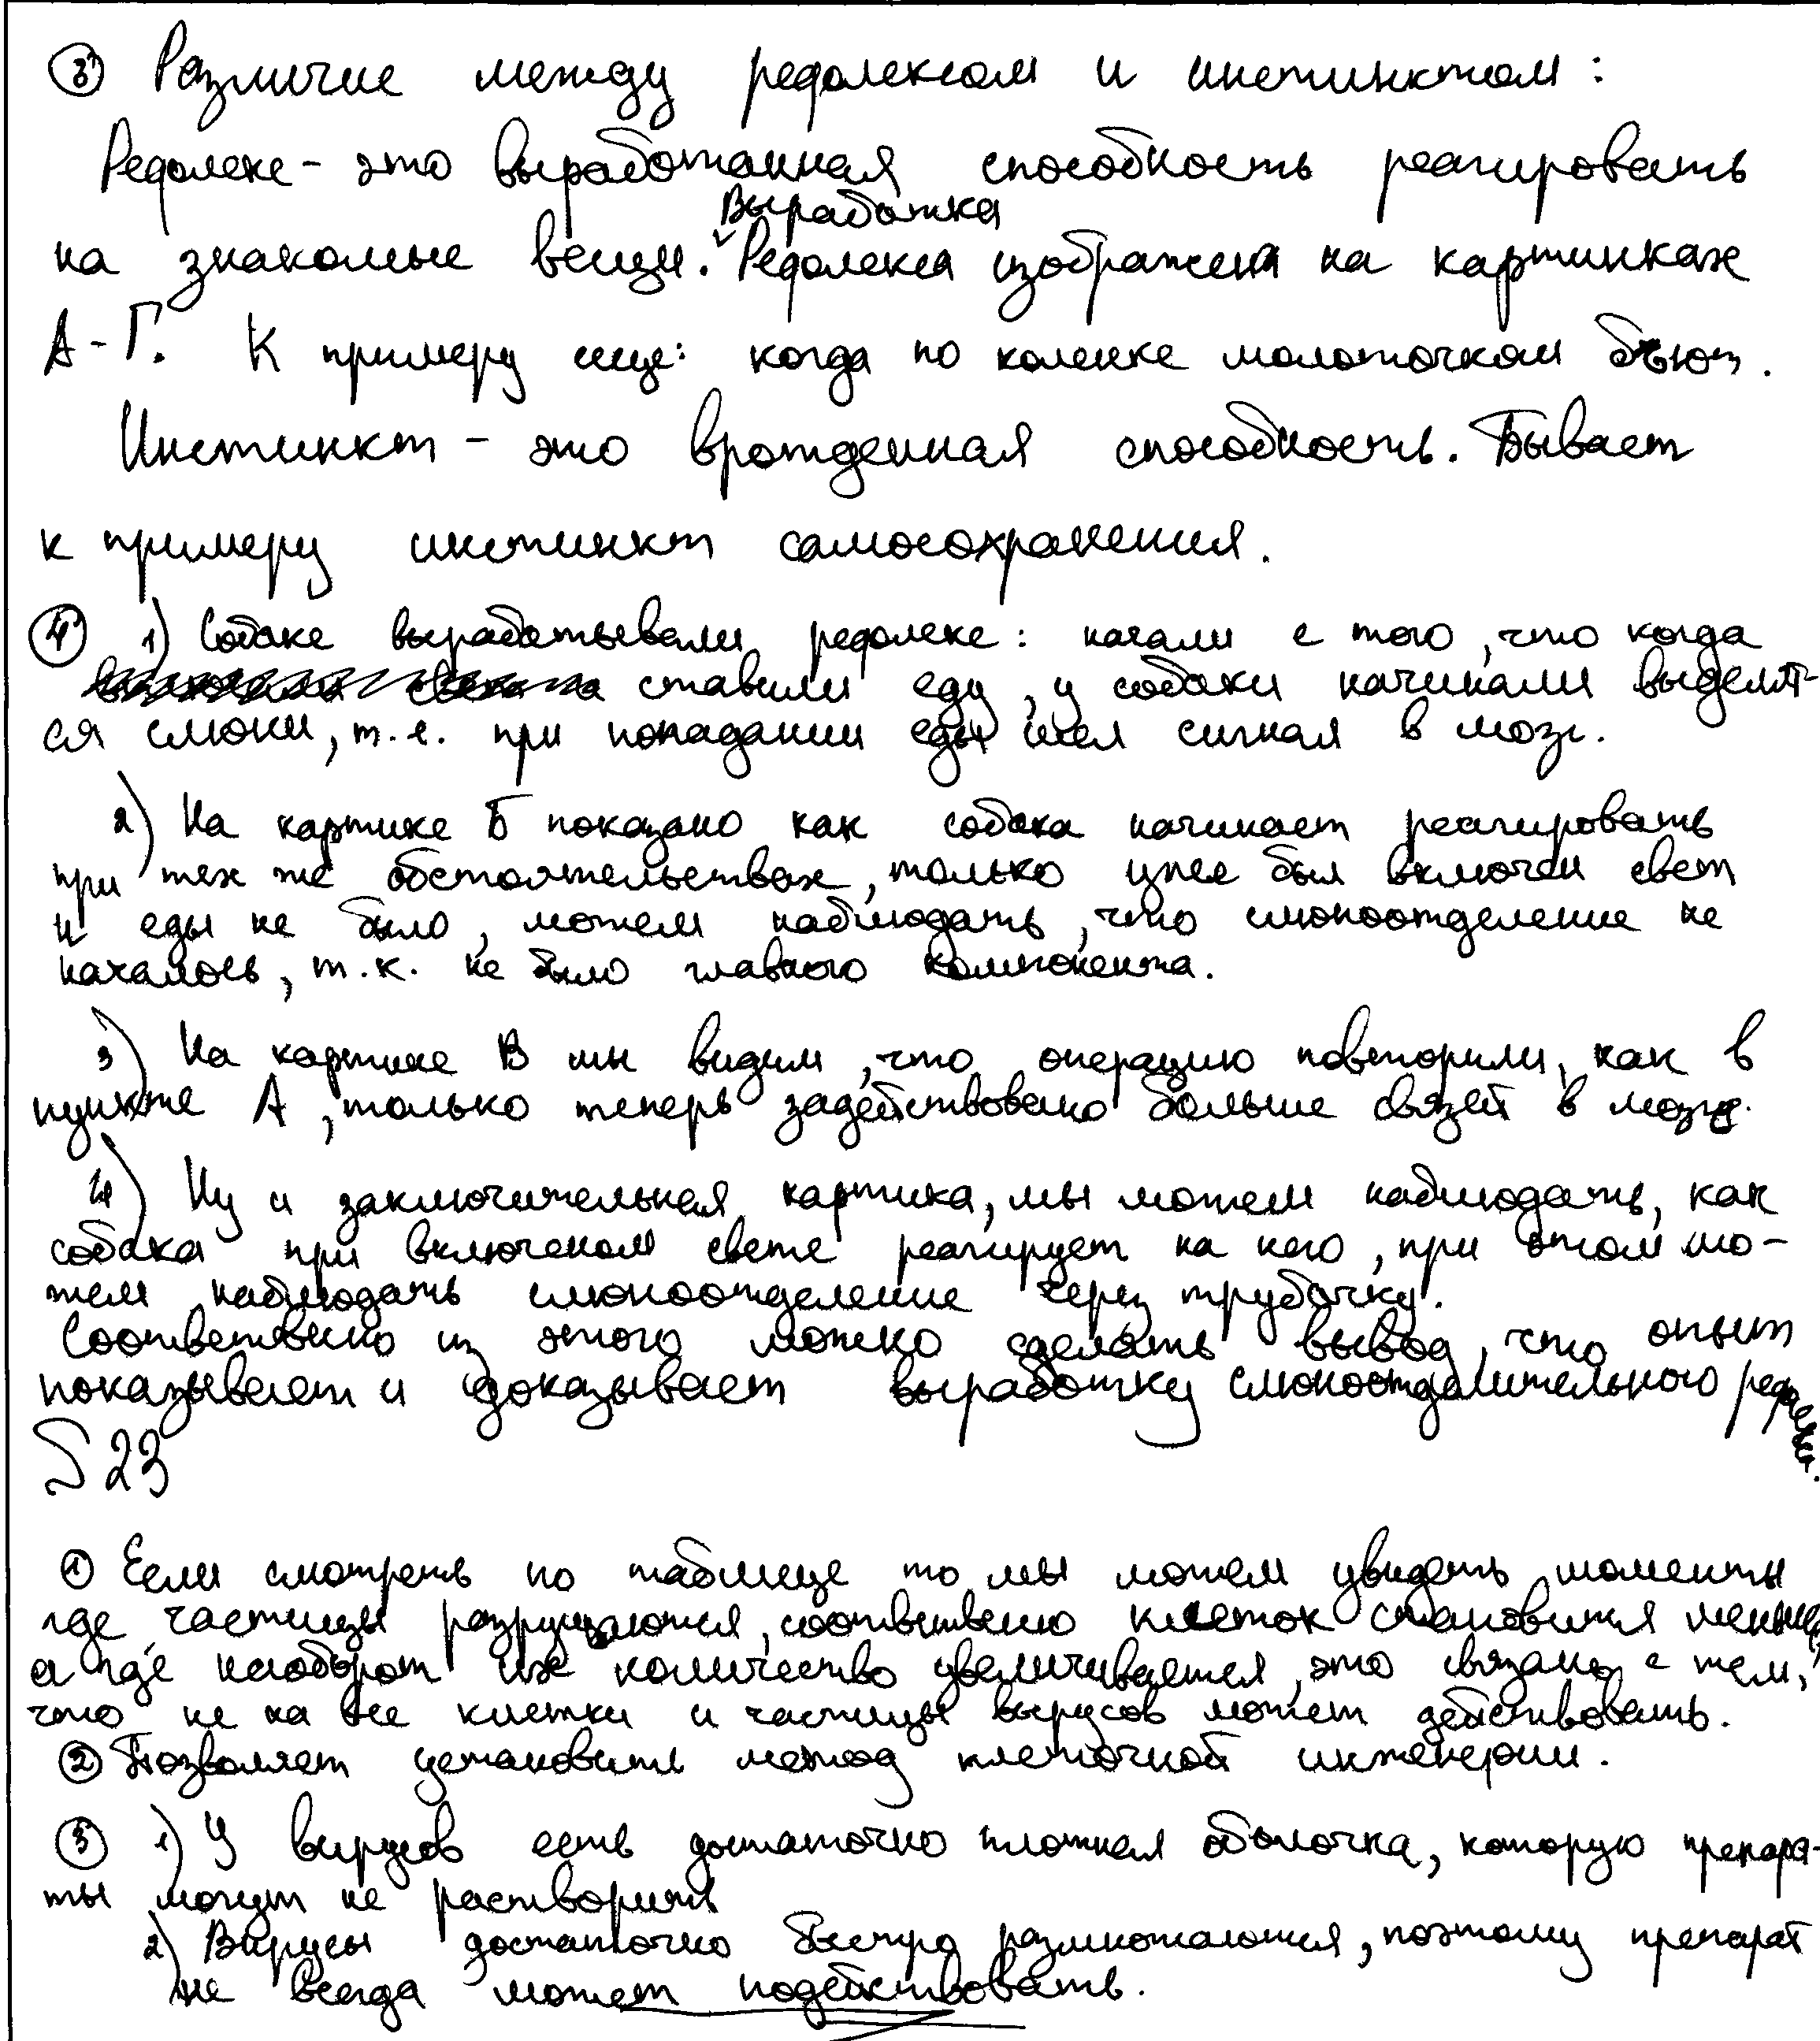 ③ Различие между рефлексом и инстинктом:
Рефлекс - это выработанная способность реагировать
Выработка
на знакомые вещи. ˅Рефлекса изображена на картинках
А-Г. К примеру еще: когда по коленке молоточком бьют.
Инстинкт - это врожденная способность. Бывает
к примеру инстинкт самосохранения.
④ 1) Собаке вырабатывали рефлекс: начали с того, что когда
ставили еду, у собаки начинали выделят-
ся слюни, т.е. при попадании еды шел сигнал в мозг.
2) На картике Б показано как собака начинает реагировать
при тех же обстоятельствах, только уже был включен свет
и еды не было, можем наблюдать, что слюноотделение не
началось, т.к. не было главного компонента.
3) На картике В мы видим, что операцию повторили, как в
пункте А, только теперь задействовано больше связей в мозге.
4) Ну и заключительная картика, мы можем наблюдать, как
собака при включеном свете реагирует на него, при этом мо-
жем наблюдать слюноотделение через трубочку.
Соответвенно из этого можно сделать вывод, что опыт
показывает и доказывает выработку слюноотделительного рефлекса.
§ 23
① Если смотреть по таблице то мы можем увидеть моменты
где частицы разрушаются, соотвественно клеток становится меньше,
а где наоборот их количество увеличивается, это связано с тем,
что не на все клетки и частицы вырусов может действовать.
② Позволяет установить метод клеточной инженерии.
③ 1) У вирусов есть достаточно плотная оболочка, которую препара-
ты могут не растворить
2) Вирусы достаточно быстро размножаются, поэтому препарат
не всегда может подействовать.